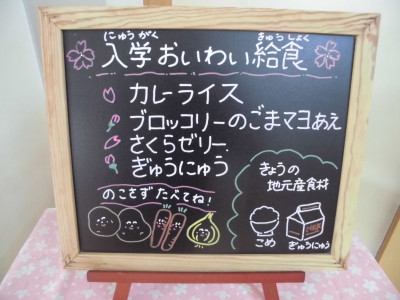 にゅうがく きゅうしょく
入学おいわい給食
カレーライス
ブロッコリーのごまマヨあえ
さくらゼリー
ぎゅうにゅう
のこさずたべてね!
きょうの
地元産食材
こめ ぎゅうにゅう